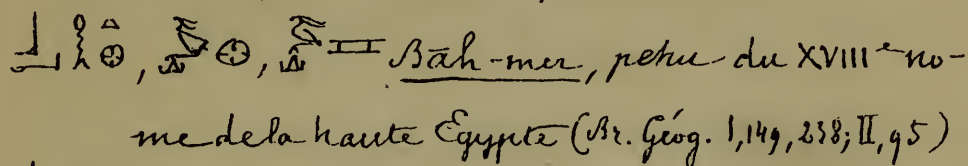 𓃀𓂝𓎛𓏏𓊖, 𓅣𓊖, 𓅣𓈘 Bāh-mer, pehu du XVIIIᵉ no-
me de la haute Egypte (Br. Géog. I, 149, 238; II, 95)